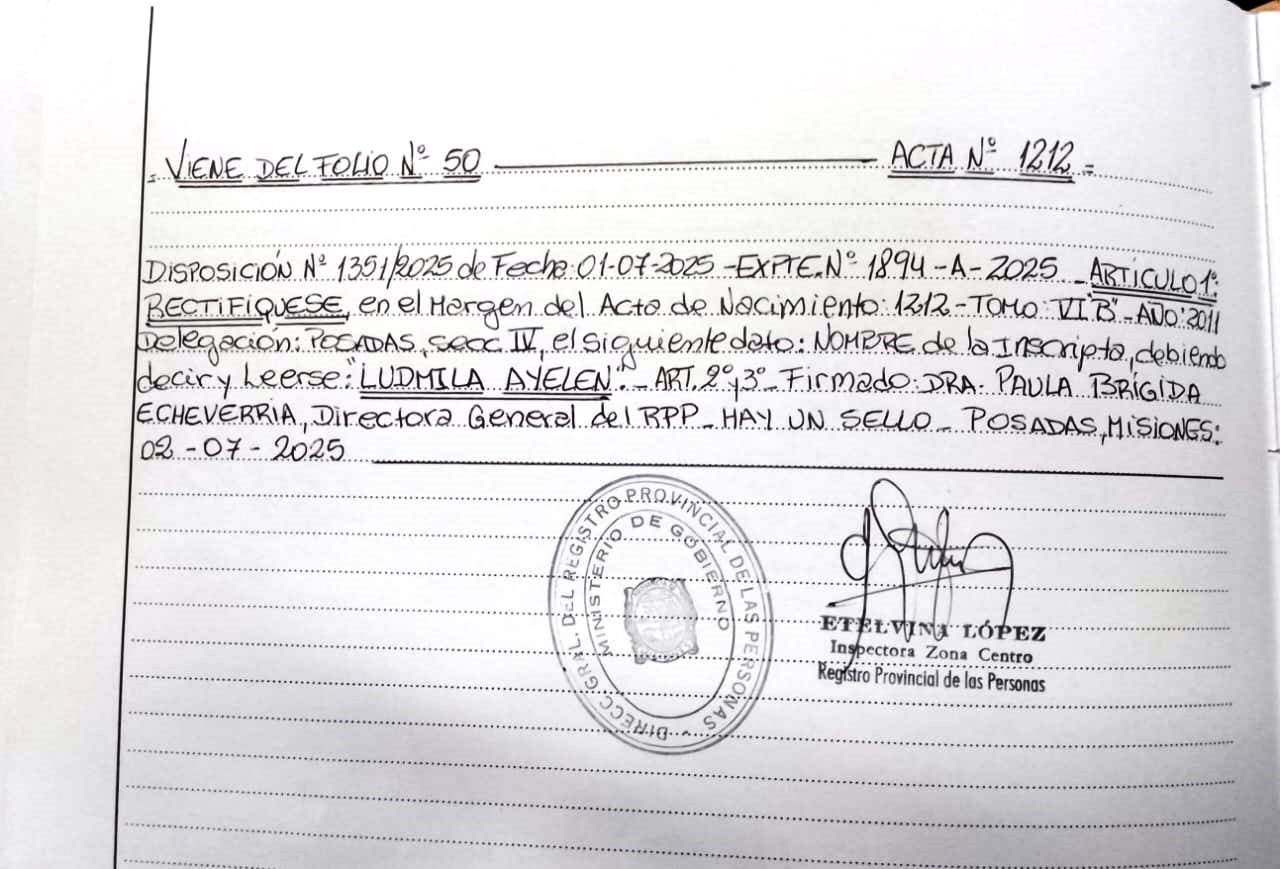 VIENE DEL FOLIO Nº 50 ACTA Nº 1212
DISPOSICIÓN Nº 1351/2025 de Fecha: 01-07-2025 - EXPTE. Nº 1894 - A - 2025 - ARTÍCULO 1º:
RECTIFÍQUESE, en el Margen del Acta de Nacimiento: 1212 - TOMO: VI "B" - AÑO: 2011
Delegación: POSADAS, secc IV, el siguiente dato: NOMBRE de la Inscripta, debiendo
decir y Leerse: "LUDMILA AYELEN". - ART. 2º y 3º - Firmado: DRA. PAULA BRÍGIDA
ECHEVERRIA, Directora General del RPP - HAY UN SELLO - POSADAS, MISIONES:
02 - 07 - 2025
DIRECC. GRAL. DEL REGISTRO PROVINCIAL DE LAS PERSONAS
MINISTERIO DE GOBIERNO
ETELVINA LÓPEZ
Inspectora Zona Centro
Registro Provincial de las Personas